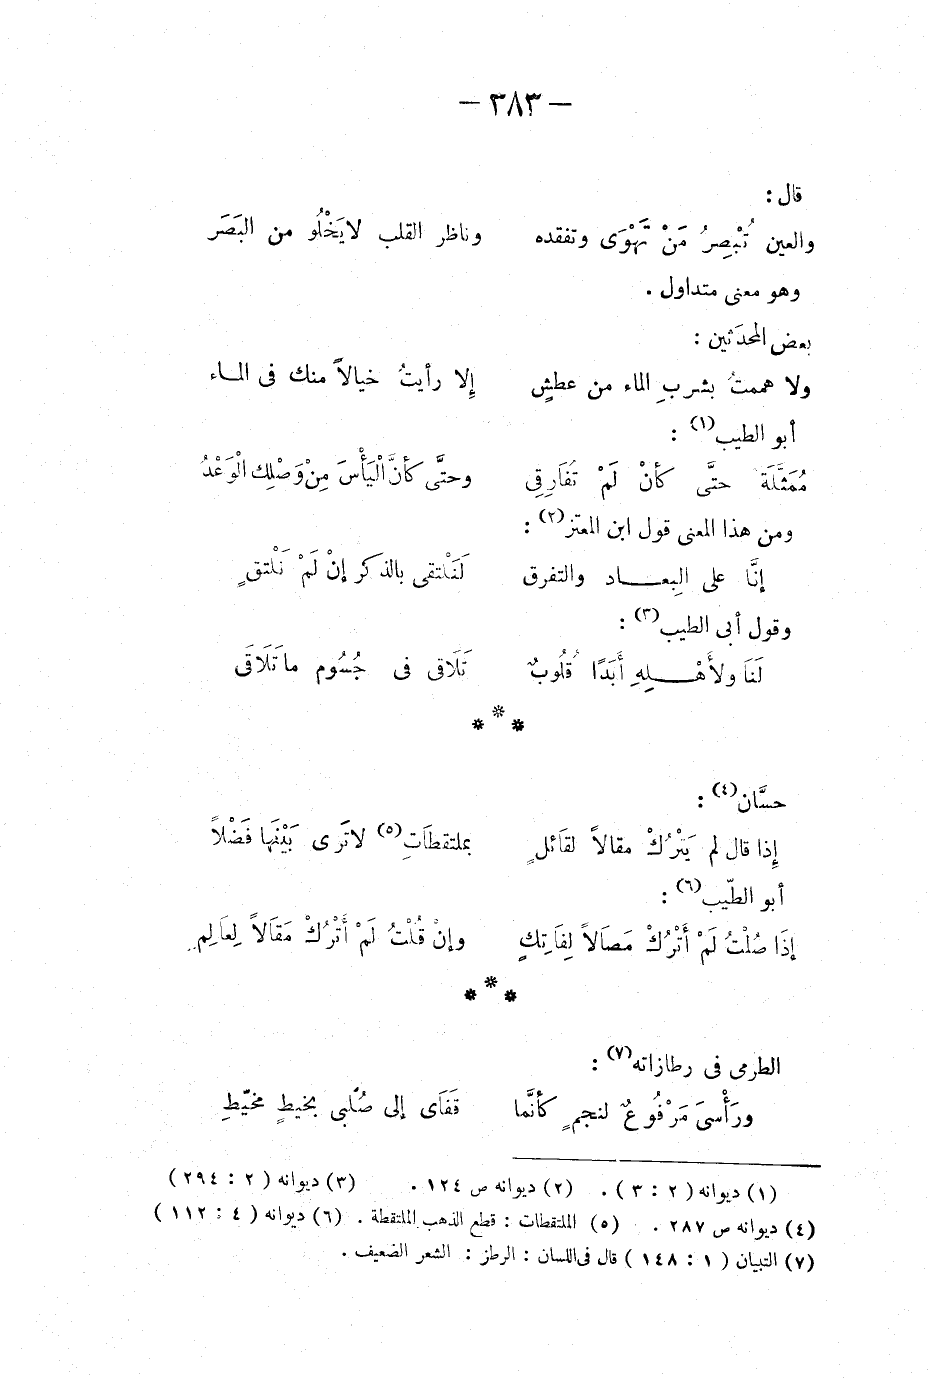 — ٣٨٣ —
قال :
والعين تُبْصِرُ مَنْ تَهْوَى وتفقده وناظر القلب لا يَخْلُو من البَصَر
وهو معنى متداول .
بعض المحدَثين :
ولا هممتُ بشربِ الماء من عطشٍ إلا رأيتُ خيالاً منك فى المـاء
أبو الطيب(١) :
مُمَثَّلَة حتَّى كأنْ لَمْ تُفَارِقِى وحتَّى كأنَّ الْيَأْسَ مِنْ وَصْلِك الْوَعْدُ
ومن هذا المعنى قول ابن المعتز(٢) :
إنَّا على البِعـــاد والتفرق لَنَلْتقى بالذكر إنْ لَمْ نَلْتقِ
وقول أبى الطيب(٣) :
لَنَا ولأَهْـــلِهِ أَبَدًا قُلُوبٌ تَلَاقى فى جُسُوم ما تَلَاقَى
* * *
حسَّان(٤) :
إذا قال لم يَتْرُكْ مقالاً لقائلٍ بملتقطَاتٍ(٥) لا تَرى بَيْنَها فَضْلاً
أبو الطّيب(٦) :
إذَا صُلْتُ لَمْ أَتْرُكْ مَصَالاً لِفَاتِكٍ وإنْ قُلْتُ لَمْ أَتْرُكْ مَقَالاً لِعَالِمِ
* * *
الطرمى فى رطازاته(٧) :
ورَأْسىَ مَرْفُوعٌ لنجمٍ كأنَّما قَفَاى إلى صُلْبى بخيطٍ مخيَّطِ
(١) ديوانه ( ٢ : ٣ ) . (٢) ديوانه ص ١٢٤ . (٣) ديوانه ( ٢ : ٢٩٤ )
(٤) ديوانه ص ٢٨٧ . (٥) الملتقطات : قطع الذهب الملتقطة . (٦) ديوانه ( ٤ : ١١٢ )
(٧) التبيان ( ١ : ١٤٨ ) قال فى اللسان : الرطز : الشعر الضعيف .